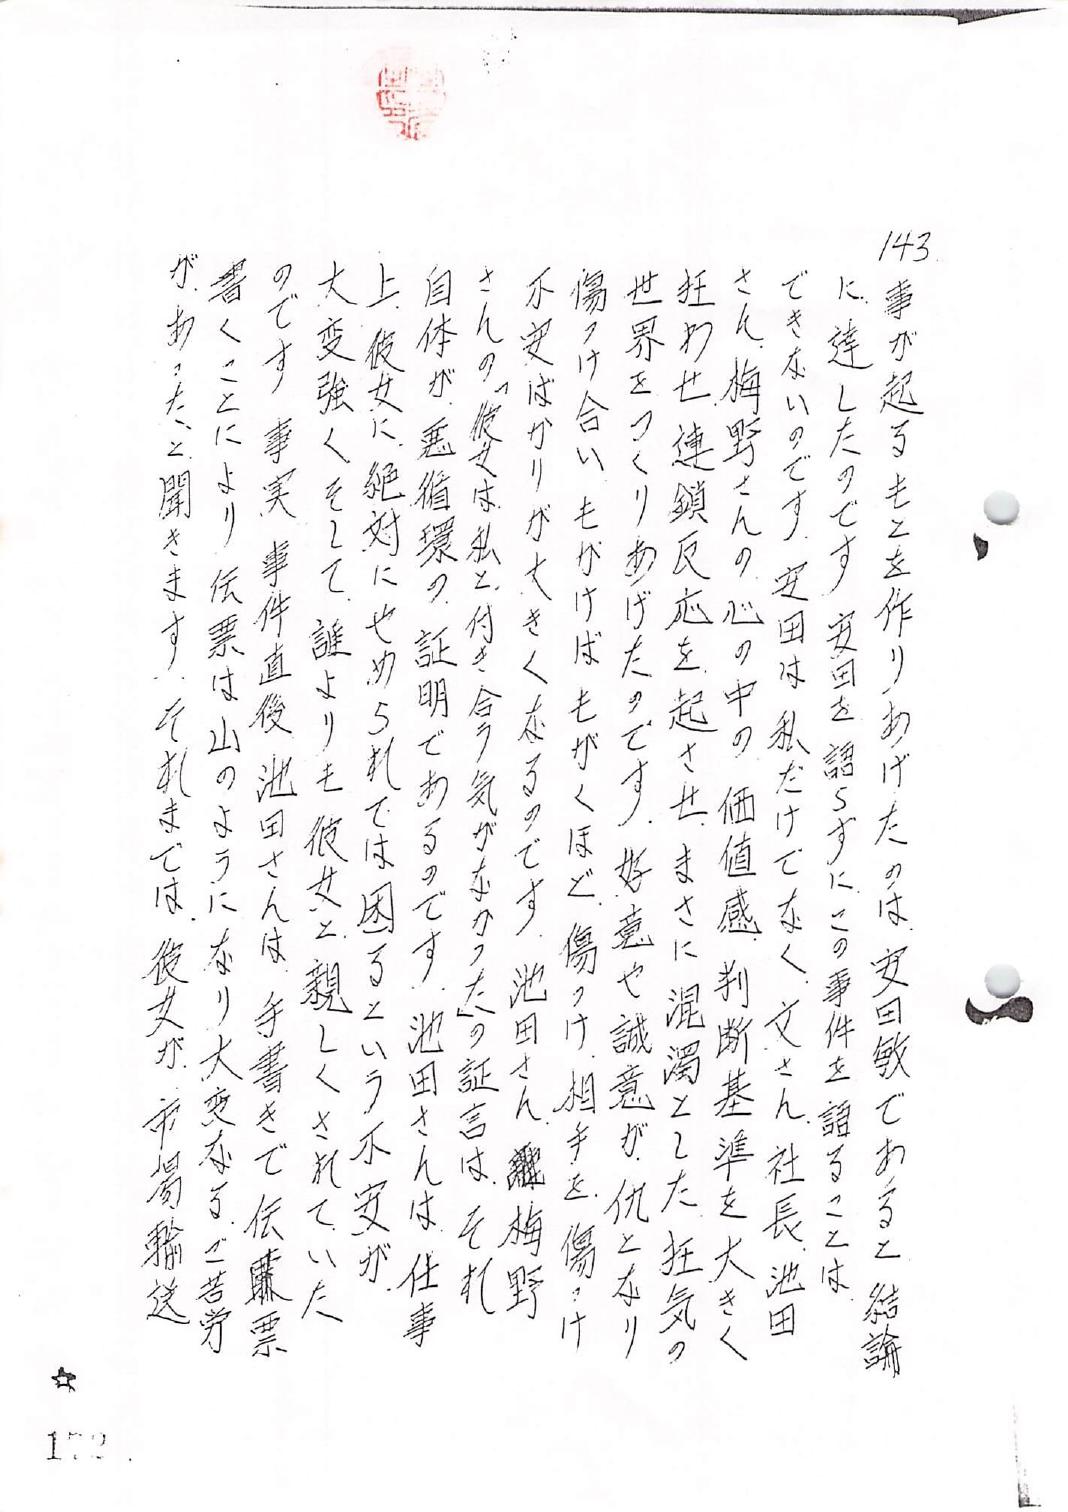 143
事が起るもとを作りあげたのは、安田敏であると、結論
に、達したのです、安田を語らずに、この事件を語ることは、
できないのです、安田は私だけでなく、文さん、社長、池田
さん、梅野さんの、心の中の価値感、判断基準を大きく
狂わせ、連鎖反応を起させ、まさに混濁とした、狂気の
世界をつくりあげたのです、好意や誠意が、仇となり
傷つけ合い、もがけばもがくほど、傷つけ、相手を、傷つけ
不安ばかりが大きくなるのです、池田さん、梅野
さんの、「彼女は私と、付き合う気がなかった」の証言は、それ
自体が、悪循環の、証明であるのです、池田さんは、仕事
上、彼女に、絶対にせめられては困るという不安が、
大変強く、そして、誰よりも、彼女と、親しくされていた
のです、事実、事件直後、池田さんは、手書きで伝票
書くことにより、伝票は山のようになり大変なる、ご苦労
が、あった、と聞きます、それまでは、彼女が、市場輸送
☆